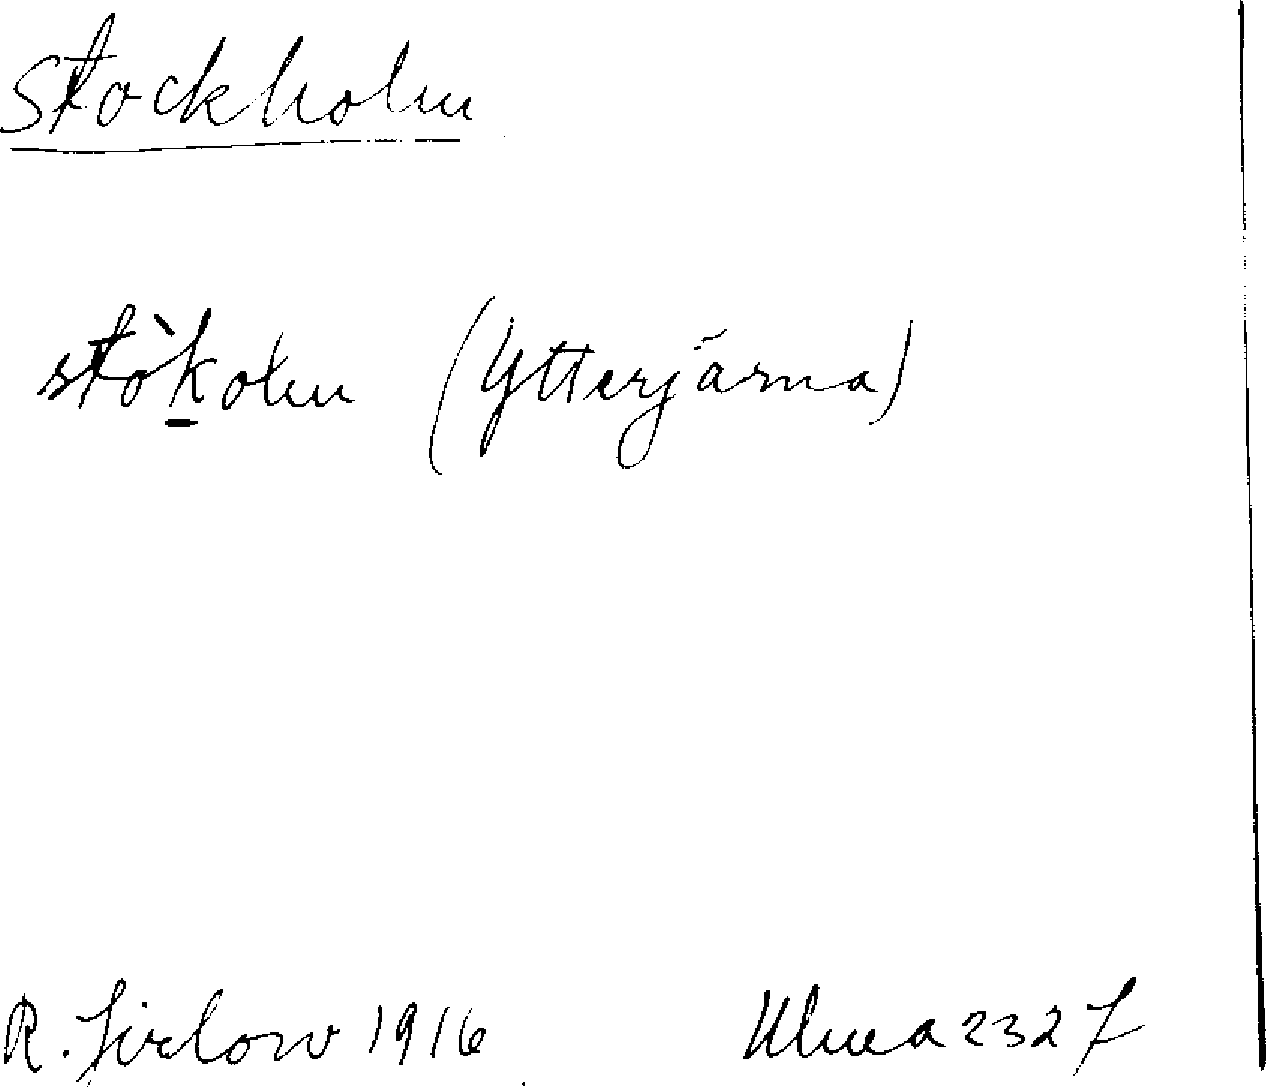 Stockholm
stòk̲olm (Ytterjärna)
R. Jirlow 1916 Ulma 2327